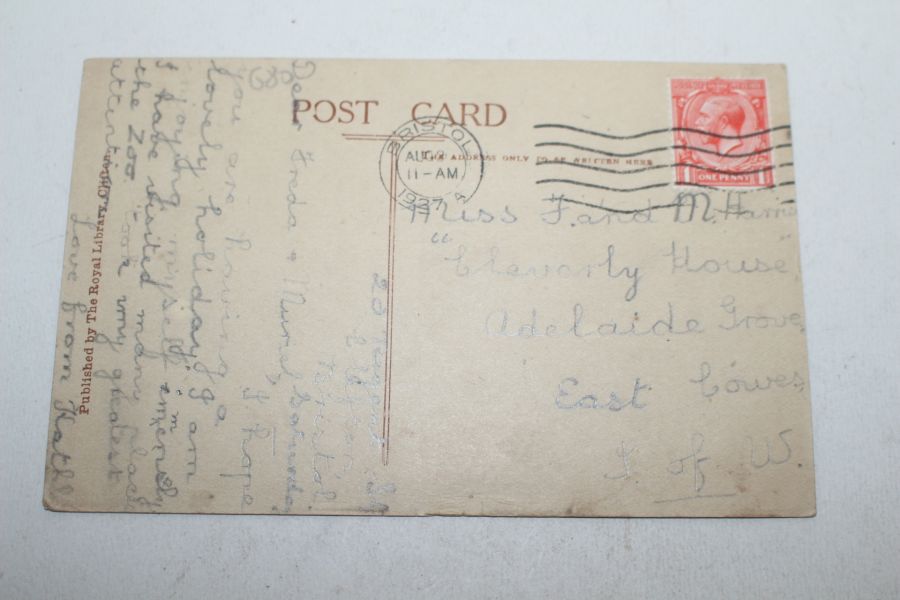 POST CARD
THE ADDRESS ONLY TO BE WRITTEN HERE
BRISTOL
AUG
11-AM
1927
A
1 ONE PENNY 1
Miss F. and M. Harris
"Cheverly House
Adelaide Grove
East Cowes
I. of W.
20
Clifton
Bristol
Dear Freda & Muriel, Saturday
I hope
you are having a
lovely holiday. I am
enjoying myself immensely
I have visited many places
the Zoo my greatest
attention
Love from Kath
Published by The Royal Library, Clifton.